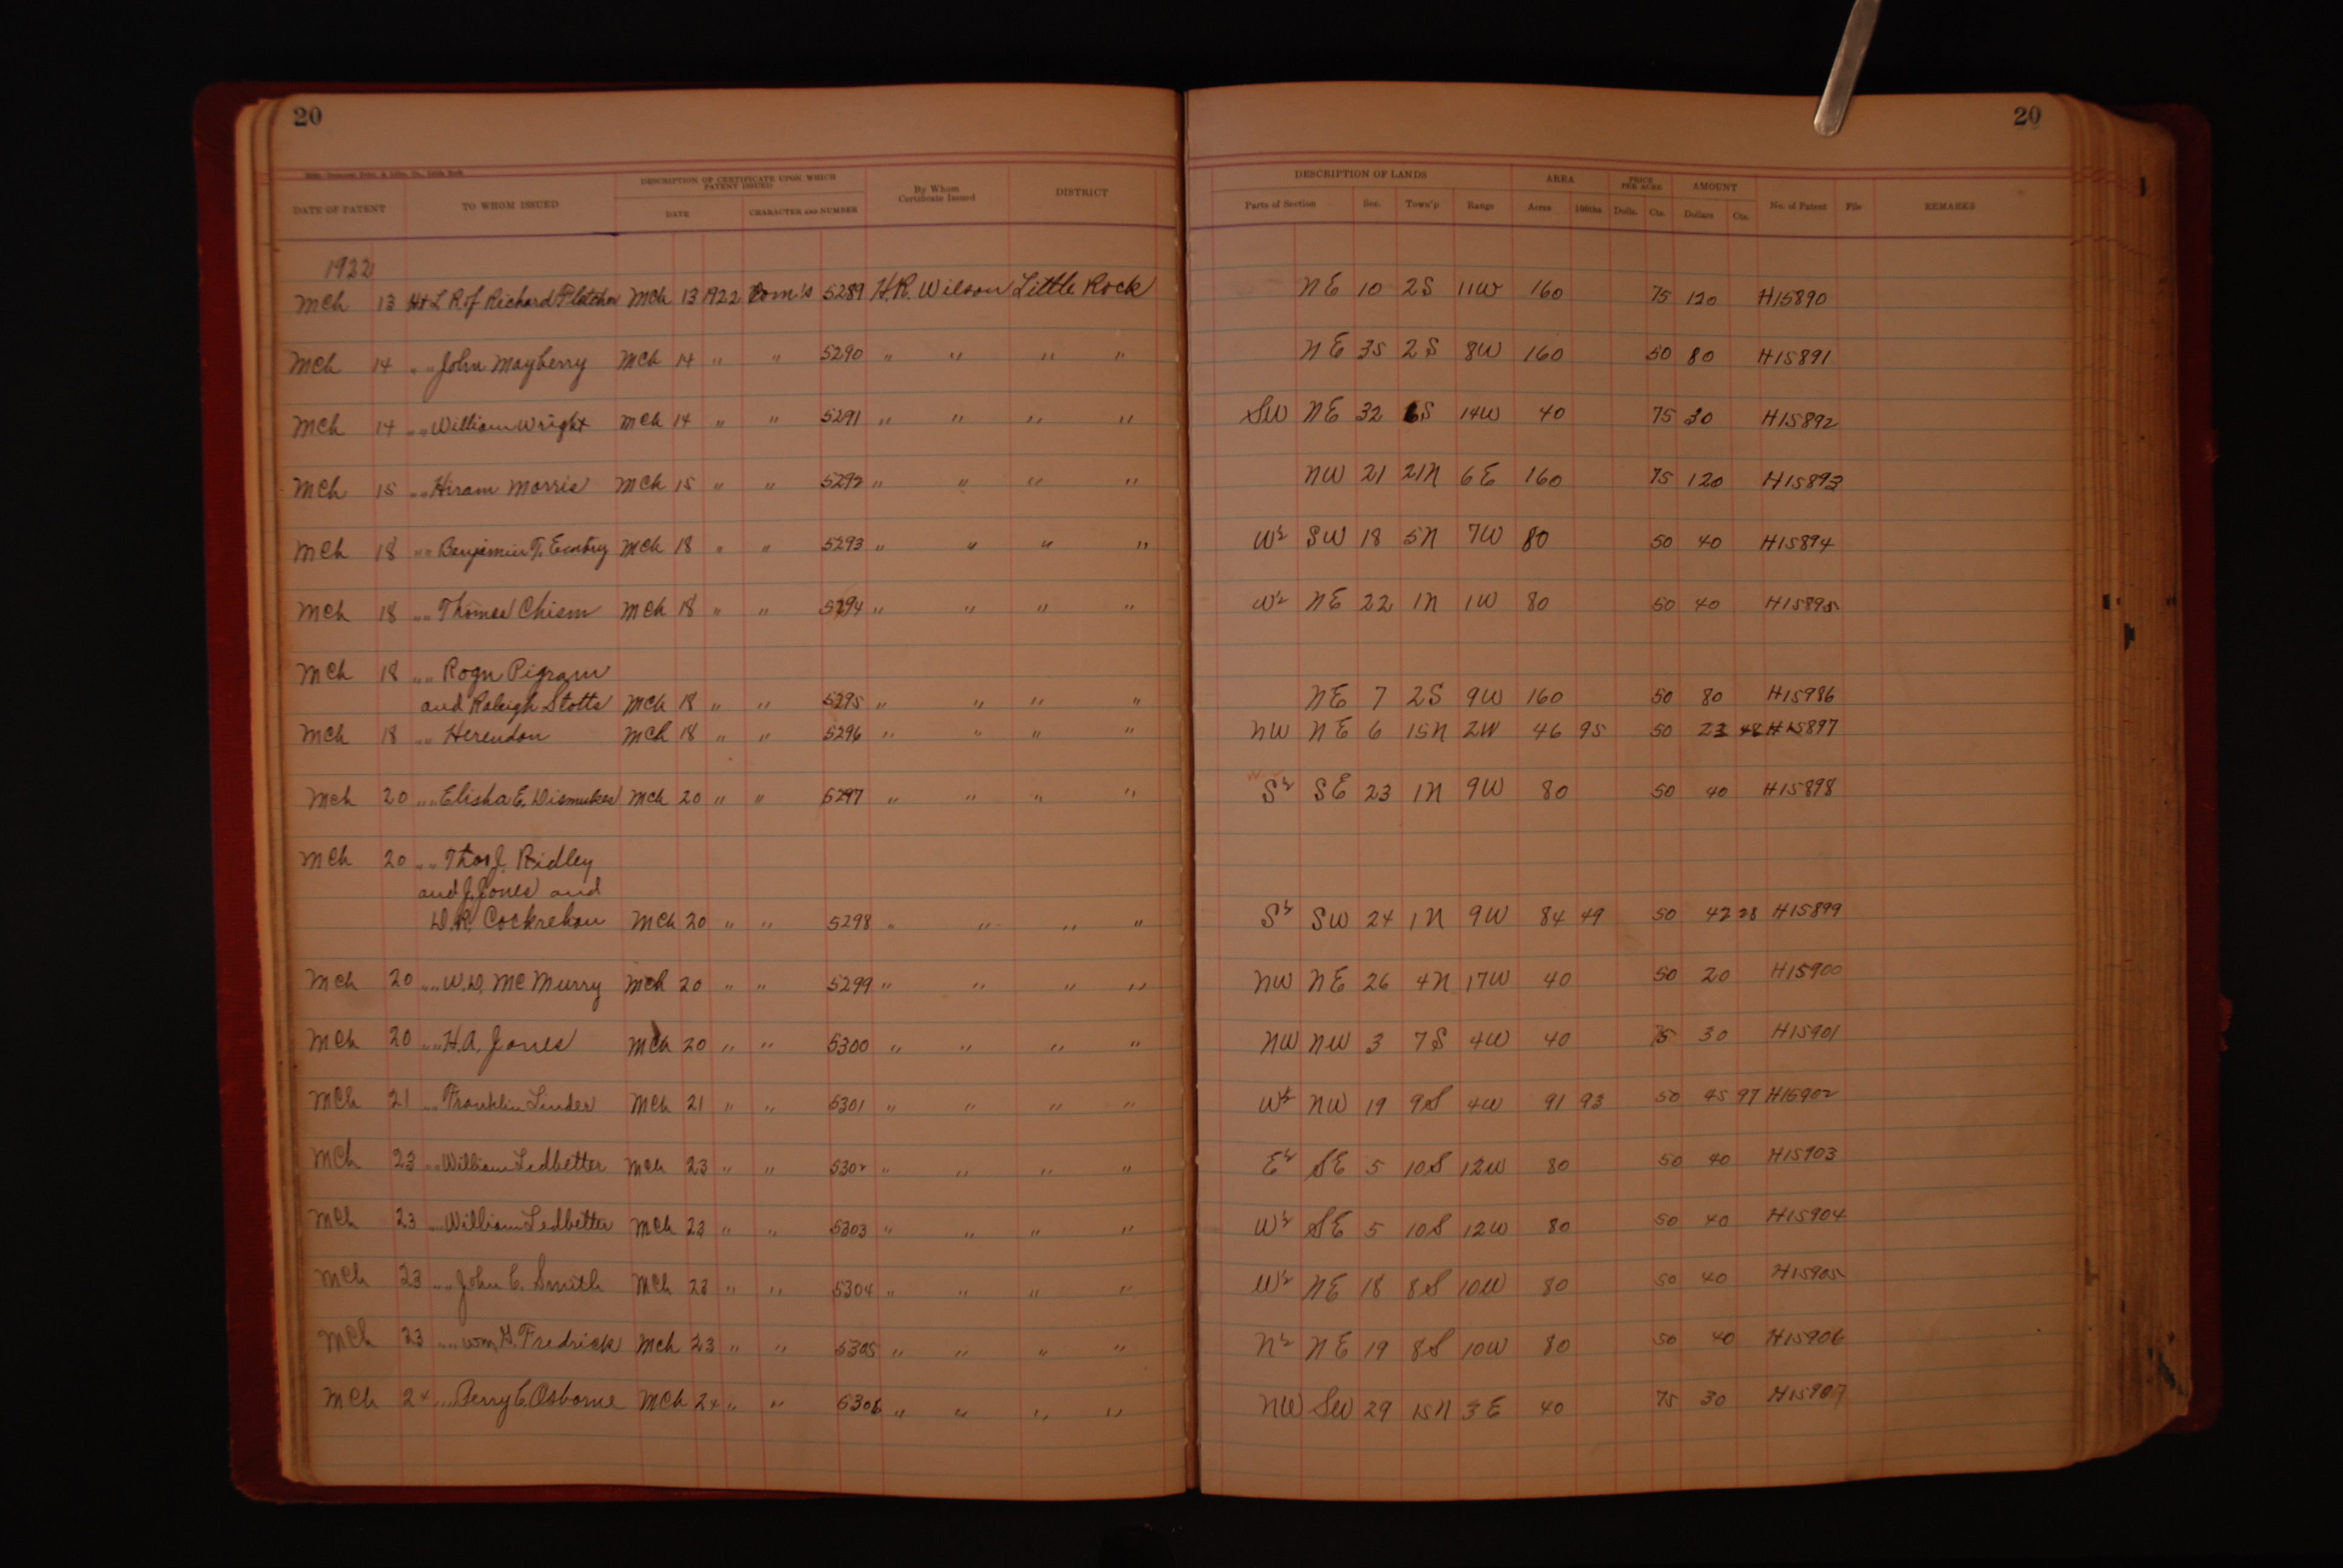 20
20
DATE OF PATENT TO WHOM ISSUED DESCRIPTION OF CERTIFICATE UPON WHICH PATENT ISSUED By Whom Certificate Issued DISTRICT DESCRIPTION OF LANDS AREA PRICE PER ACRE AMOUNT No. of Patent File REMARKS
DATE CHARACTER AND NUMBER Parts of Section Sec. Town'p Range Acres 100ths Dolls. Cts. Dollars Cts.
1922
Mch 13 H+L R of Richard Fletcher Mch 13 1922 Com's 5289 H.R. Wilson Little Rock NE 10 2S 11W 160 75 120 H15890
Mch 14 " " John Mayberry Mch 14 " " 5290 " " " " NE 35 2S 8W 160 50 80 H15891
Mch 14 " " William Wright Mch 14 " " 5291 " " " " SW NE 32 6S 14W 40 75 30 H15892
Mch 15 " " Hiram Morris Mch 15 " " 5292 " " " " NW 21 21N 6E 160 75 120 H15893
Mch 18 " " Benjamin T. Mch 18 " " 5293 " " " " W½ SW 18 5N 7W 80 50 40 H15894
Mch 18 " " Thomas Chism Mch 18 " " 5294 " " " " W½ NE 22 1N 1W 80 50 40 H15895
Mch 18 " " Pigram
and Raleigh Stotts Mch 18 " " 5295 " " " " NE 7 2S 9W 160 50 80 H15986
Mch 18 " " Herendon Mch 18 " " 5296 " " " " NW NE 6 15N 2W 46 95 50 23 48 H15897
Mch 20 " " Elisha E. Dismukes Mch 20 " " 5297 " " " " S½ SE 23 1N 9W 80 50 40 H15898
Mch 20 " " Thos J. Ridley
and J. Jones and
D.R. Mch 20 " " 5298 " " " " S½ SW 24 1N 9W 84 49 50 42 28 H15899
Mch 20 " " W.D. McMurry Mch 20 " " 5299 " " " " NW NE 26 4N 17W 40 50 20 H15900
Mch 20 " " H.A. Jones Mch 20 " " 5300 " " " " NW NW 3 7S 4W 40 75 30 H15901
Mch 21 " " Franklin Linder Mch 21 " " 5301 " " " " W½ NW 19 9S 4W 91 93 50 45 97 H15902
Mch 23 " " William Ledbetter Mch 23 " " 5302 " " " " E½ SE 5 10S 12W 80 50 40 H15903
Mch 23 " " William Ledbetter Mch 23 " " 5303 " " " " W½ SE 5 10S 12W 80 50 40 H15904
Mch 23 " " John C. Smith Mch 23 " " 5304 " " " " W½ NE 18 8S 10W 80 50 40 H15905
Mch 23 " " Wm G. Fredrick Mch 23 " " 5305 " " " " N½ NE 19 8S 10W 80 50 40 H15906
Mch 24 " " Berry C. Osborne Mch 24 " " 5306 " " " " NW SW 29 15N 3E 40 75 30 H15907